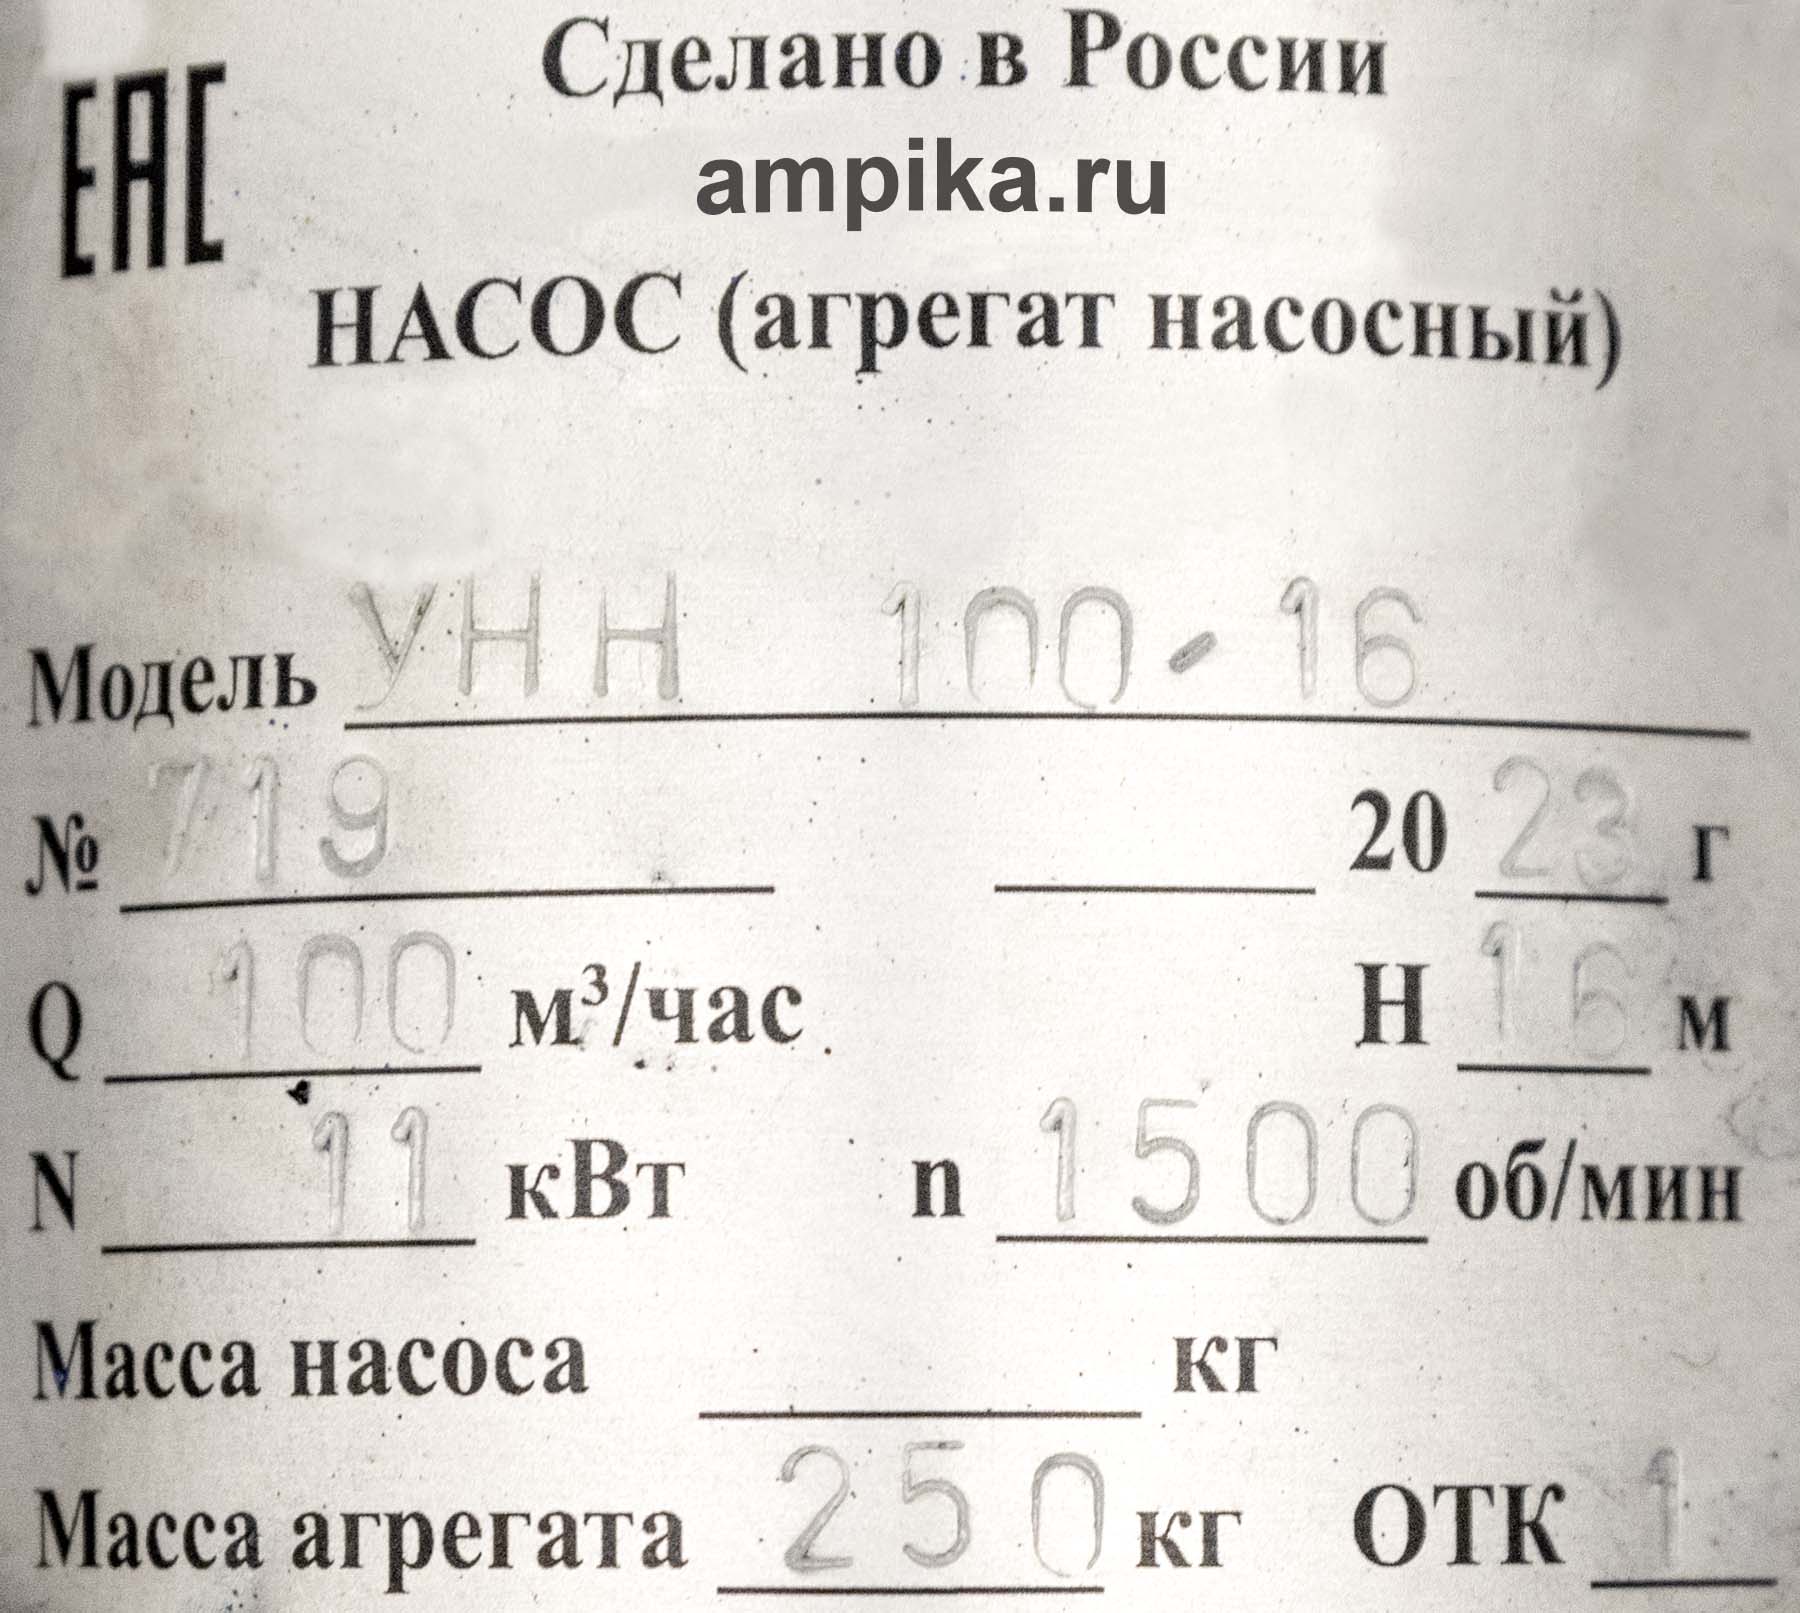 Сделано в России
EAC
ampika.ru
НАСОС (агрегат насосный)
Модель УНН 100-16
№ 719 20 23 г
Q 100 м³/час Н 16 м
N 11 кВт n 1500 об/мин
Масса насоса кг
Масса агрегата 250 кг ОТК 1